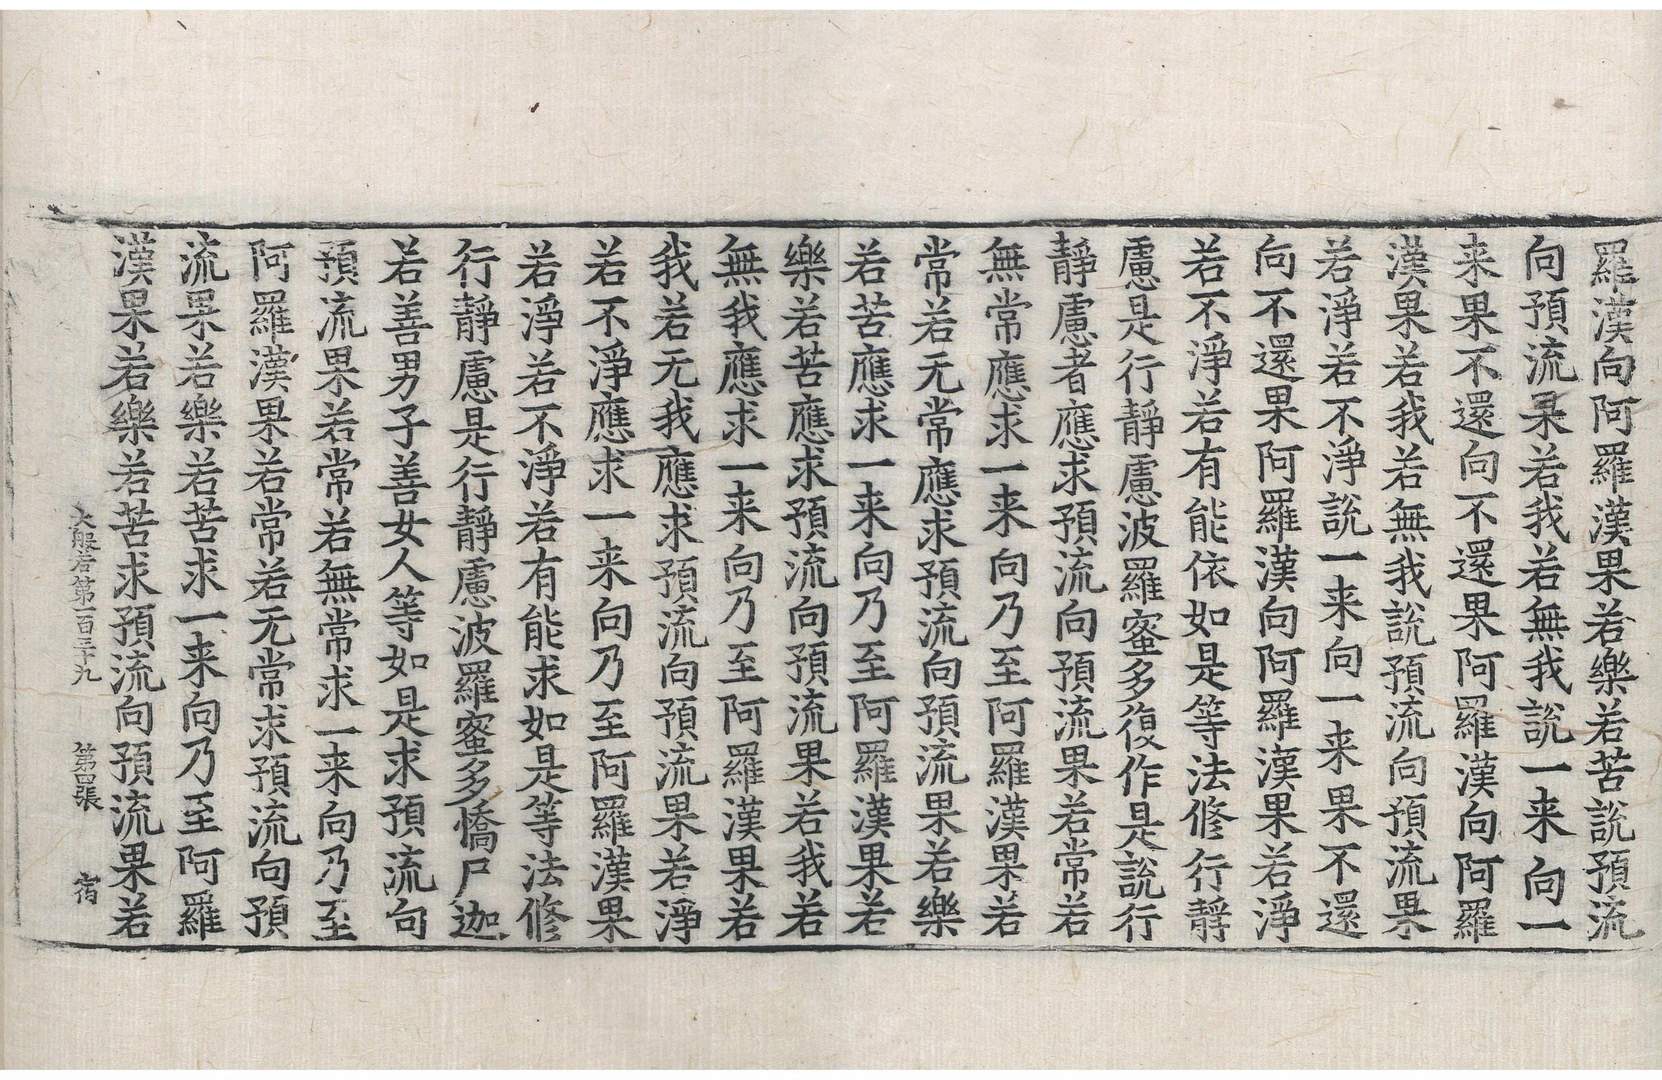 羅漢向阿羅漢果若樂若苦說預流
向預流果若我若無我說一来向一
来果不還向不還果阿羅漢向阿羅
漢果若我若無我說預流向預流果
若淨若不淨說一来向一来果不還
向不還果阿羅漢向阿羅漢果若淨
若不淨若有能依如是等法修行靜
慮是行靜慮波羅蜜多復作是說行
靜慮者應求預流向預流果若常若
無常應求一来向乃至阿羅漢果若
常若无常應求預流向預流果若樂
若苦應求一来向乃至阿羅漢果若
樂若苦應求預流向預流果若我若
無我應求一来向乃至阿羅漢果若
我若无我應求預流向預流果若淨
若不淨應求一来向乃至阿羅漢果
若淨若不淨若有能求如是等法修
行靜慮是行靜慮波羅蜜多憍尸迦
若善男子善女人等如是求預流向
預流果若常若無常求一来向乃至
阿羅漢果若常若无常求預流向預
流果若樂若苦求一来向乃至阿羅
漢果若樂若苦求預流向預流果若
大般若第一百三十九 第張 宿